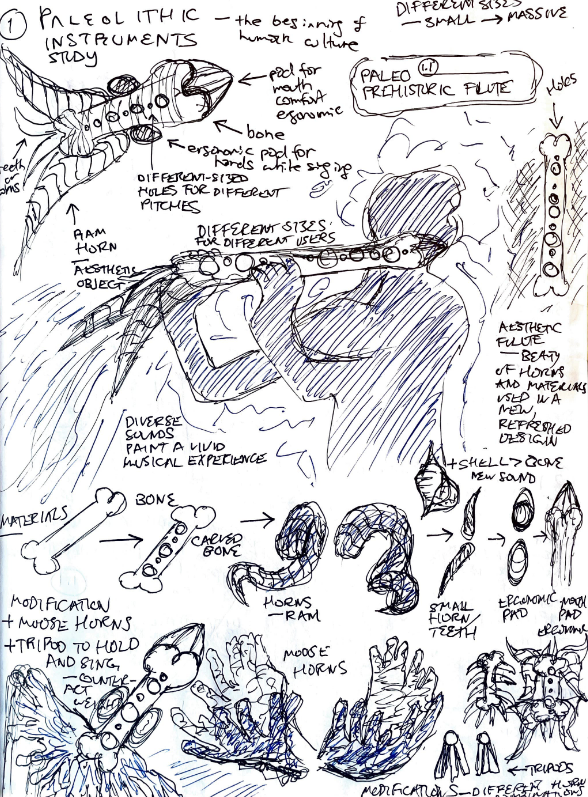 1 PALEOLITHIC
INSTRUMENTS
STUDY
- the beginning of
human culture
DIFFERENT SIZES
- SMALL → MASSIVE
PALEO 1.1
PREHISTORIC FLUTE
HOLES
← pad for
mouth
comfort
ergonomic
bone
ergonomic pad for
hands while singing
DIFFERENT-SIZED
HOLES FOR DIFFERENT
PITCHES
teeth or
RAM
HORN
- AESTHETIC
OBJECT
DIFFERENT SIZES
FOR DIFFERENT USERS
AESTHETIC
FLUTE
- BEATY
OF HORNS
AND MATERIALS
USED IN A
NEW,
REFRESHED
DESIGN
DIVERSE
SOUNDS
PAINT A VIVID
MUSICAL EXPERIENCE
+ SHELL > BONE
NEW SOUND
MATERIALS
BONE
CARVED
BONE
HORNS
- RAM
SMALL
HORN/
TEETH
ERGONOMIC
PAD
MOUTH
PAD
ERGONOMIC
1.1
MODIFICATION
+ MOOSE HORNS
+ TRIPOD TO HOLD
AND SING
- COUNTER-
ACT
WEIGHT
MOOSE
HORNS
← TRIPODS
MODIFICATIONS - DIFFERENT HORN